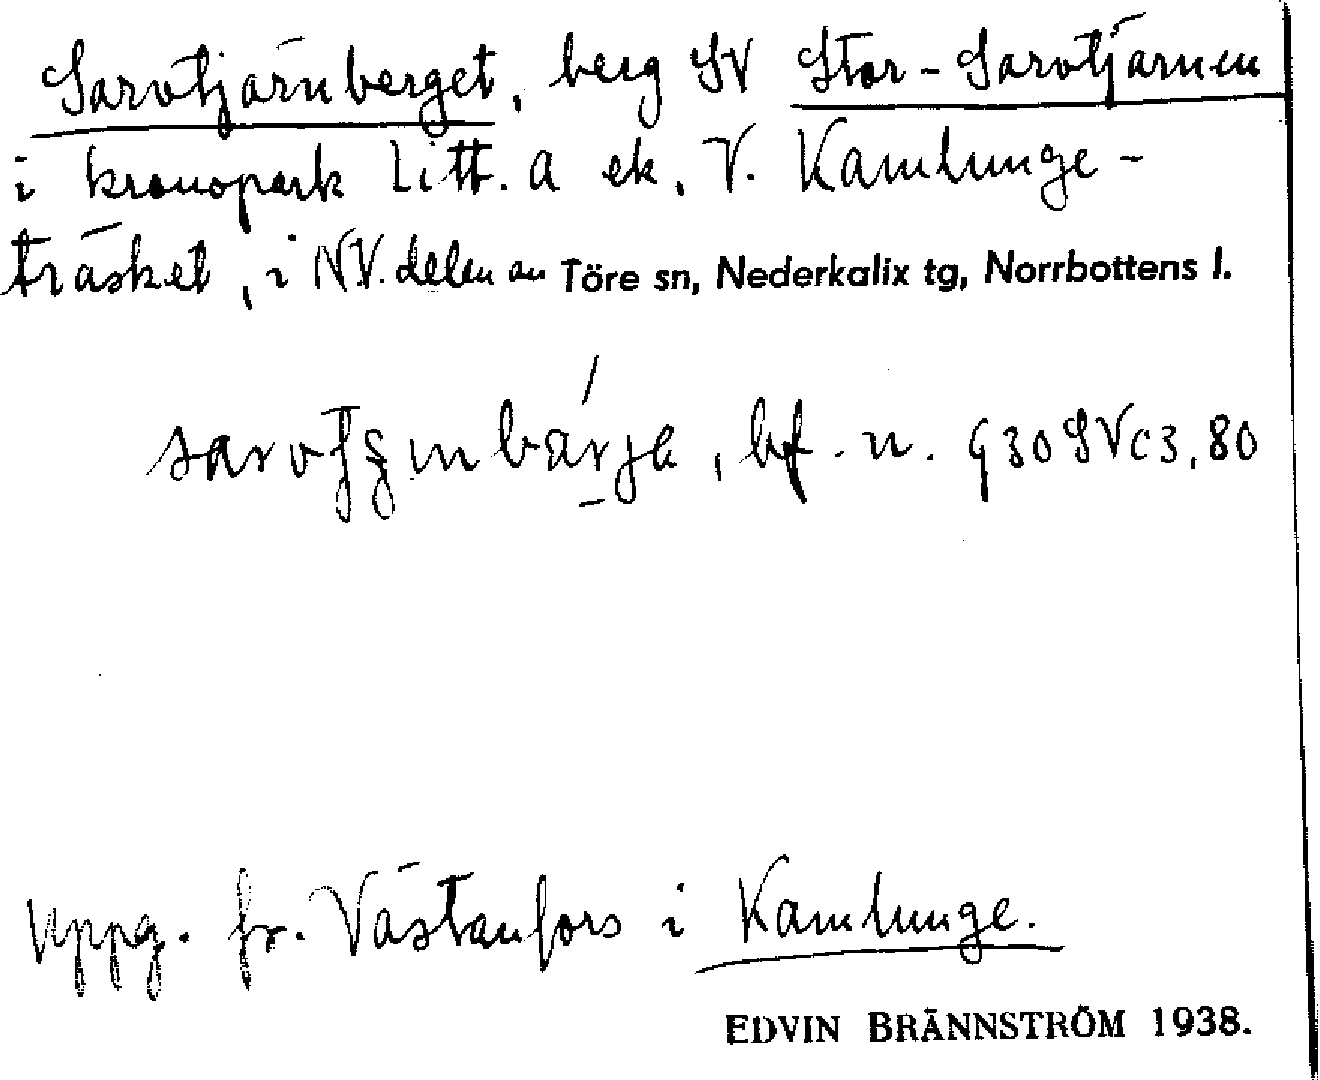 Sarvtjärnberget, berg SV Stor-Sarvtjärnen
i kronopark Litt. A ek. V. Kamlunge-
träsket, i NV. delen av Töre sn, Nederkalix tg, Norrbottens l.
bf. n. G30SVc3,80
Uppg. fr. Västanfors i Kamlunge.
EDVIN BRÄNNSTRÖM 1938.